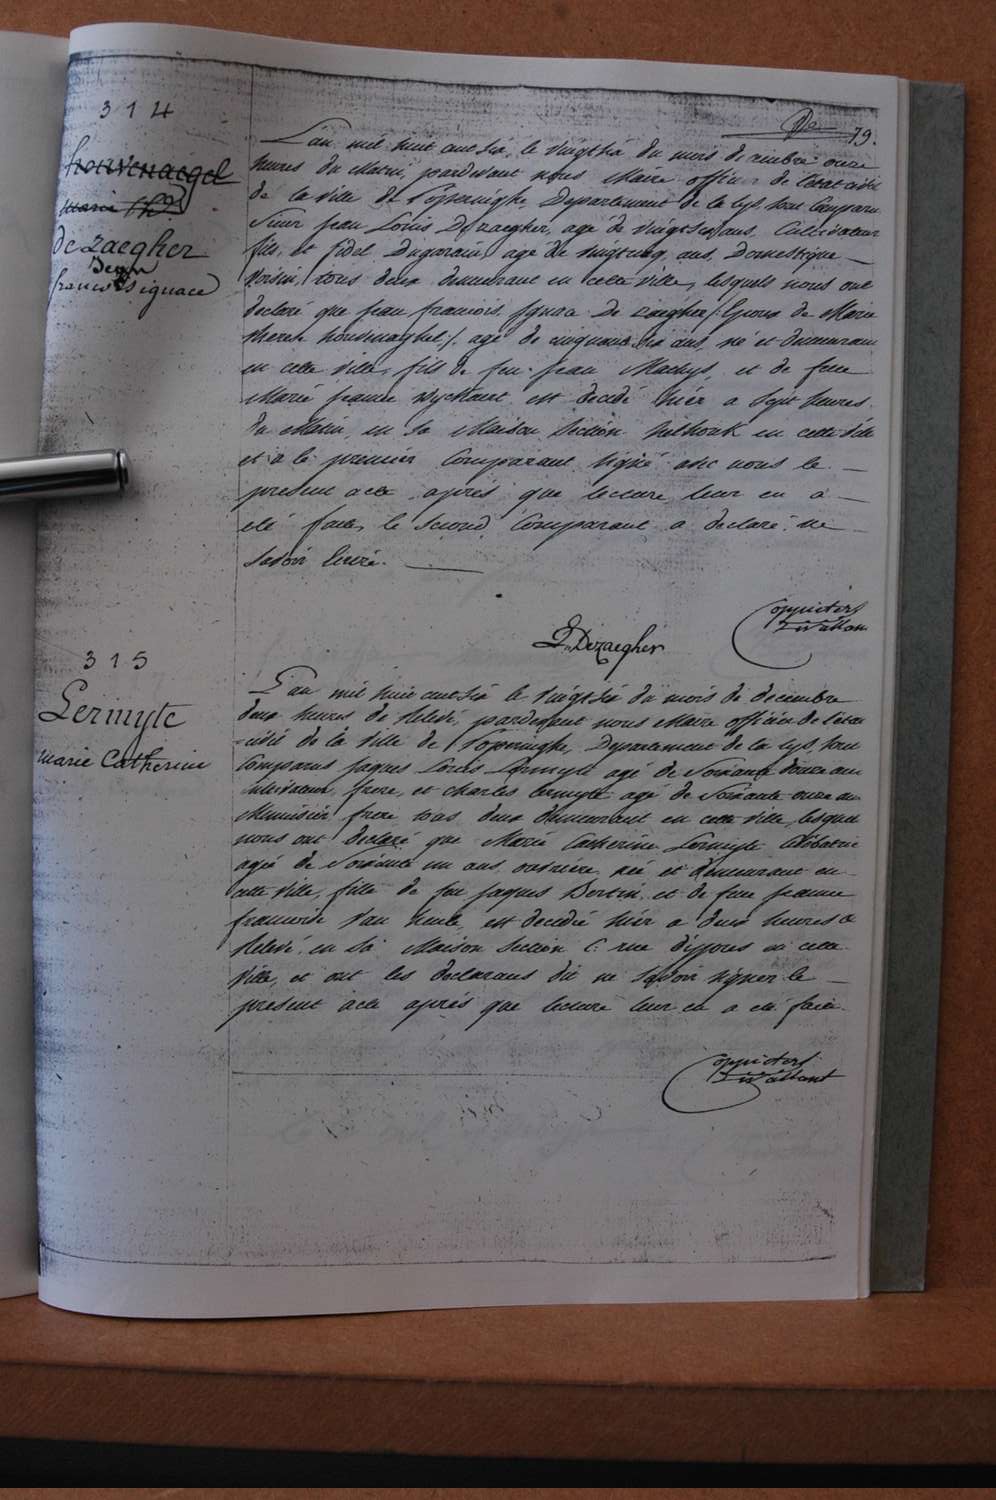 79.
314
houvenaegel
marie
de Zaegher
Jean
francois ignace
L'an mil huit cent six, le vingt six du mois de decembre onze
heures du Matin, pardevant nous Maire officier de l'etat civil
de la ville de Poperinghe, Departement de la Lys, sont Comparu
Sieur Jean Louis De Zaegher, agé de vingt six ans, Cultivateur
fils, et fidel agé de vingt cinq ans, Domestique
Voisin, tous deux demeurant en cette ville, lesquels nous ont
declaré que Jean francois Ignace De Zaegher, Epoux de Marie
therese houvenaghel, agé de cinquante six ans, né et demeurant
en cette ville, fils de feu Jean et de feue
Marie jeanne est decedé hiér a sept heures
du Matin, en sa Maison Section en cette ville
et a le premier Comparant signé avec nous le
present acte, aprés que lecture leur en a
eté faite, le second Comparant a declaré ne
savoir ecrire.
Coppieters
Stivallant
J. DeZaegher
315
Lermyte
marie Catherine
L'an mil huit cent six le vingt six du mois de decembre
deux heures de relevé, pardevant nous Maire officier de l'etat
civil de la ville de Poperinghe, Departement de la Lys, sont
Comparus Jaques Louis Lermyte agé de soixante douze ans
cultivateur, frere, et Charles Lermyte agé de soixante onze ans
frere tous deux demeurant en cette ville, lesquels
nous ont declaré que Marie Catherine Lermyte Celibataire
agée de soixante un ans, née et demeurant en
cette ville, fille de feu Jaques Bertin, et de feue jeanne
francoise Van est decedée hiér a deux heures de
relevé, en sa Maison Section C. rue d'ypres en cette
ville, et ont les declarans dit ne sçavoir signer le
present acte aprés que lecture leur en a eté faite.
Coppieters
Stivallant